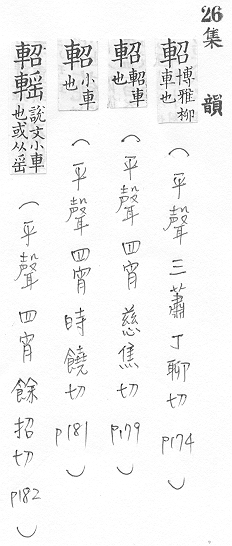 26集韻
軺博雅柳車也（平聲三蕭丁聊切p174）
軺軺車也（平聲四宵慈焦切p179）
軺小車也（平聲四宵時饒切p181）
軺䡛說文小車也或从䍃（平聲四宵餘招切p182）